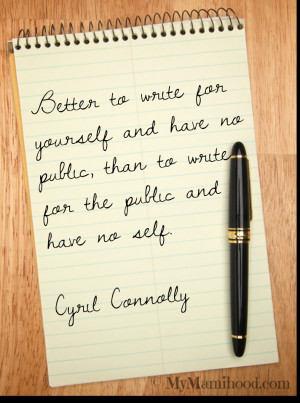 Better to write for
yourself and have no
public, than to write
for the public and
have no self.
Cyril Connolly
© MyMamihood.com